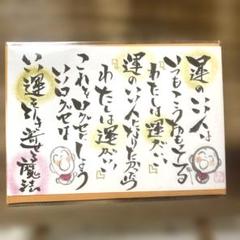 運のいい人は
いつもこうおもってる
「わたしは運がいい」
運のいい人になりたかったら
「わたしは運がいい」
これを口グセにしよう
いい口グセは
いい運を引き寄せる魔法